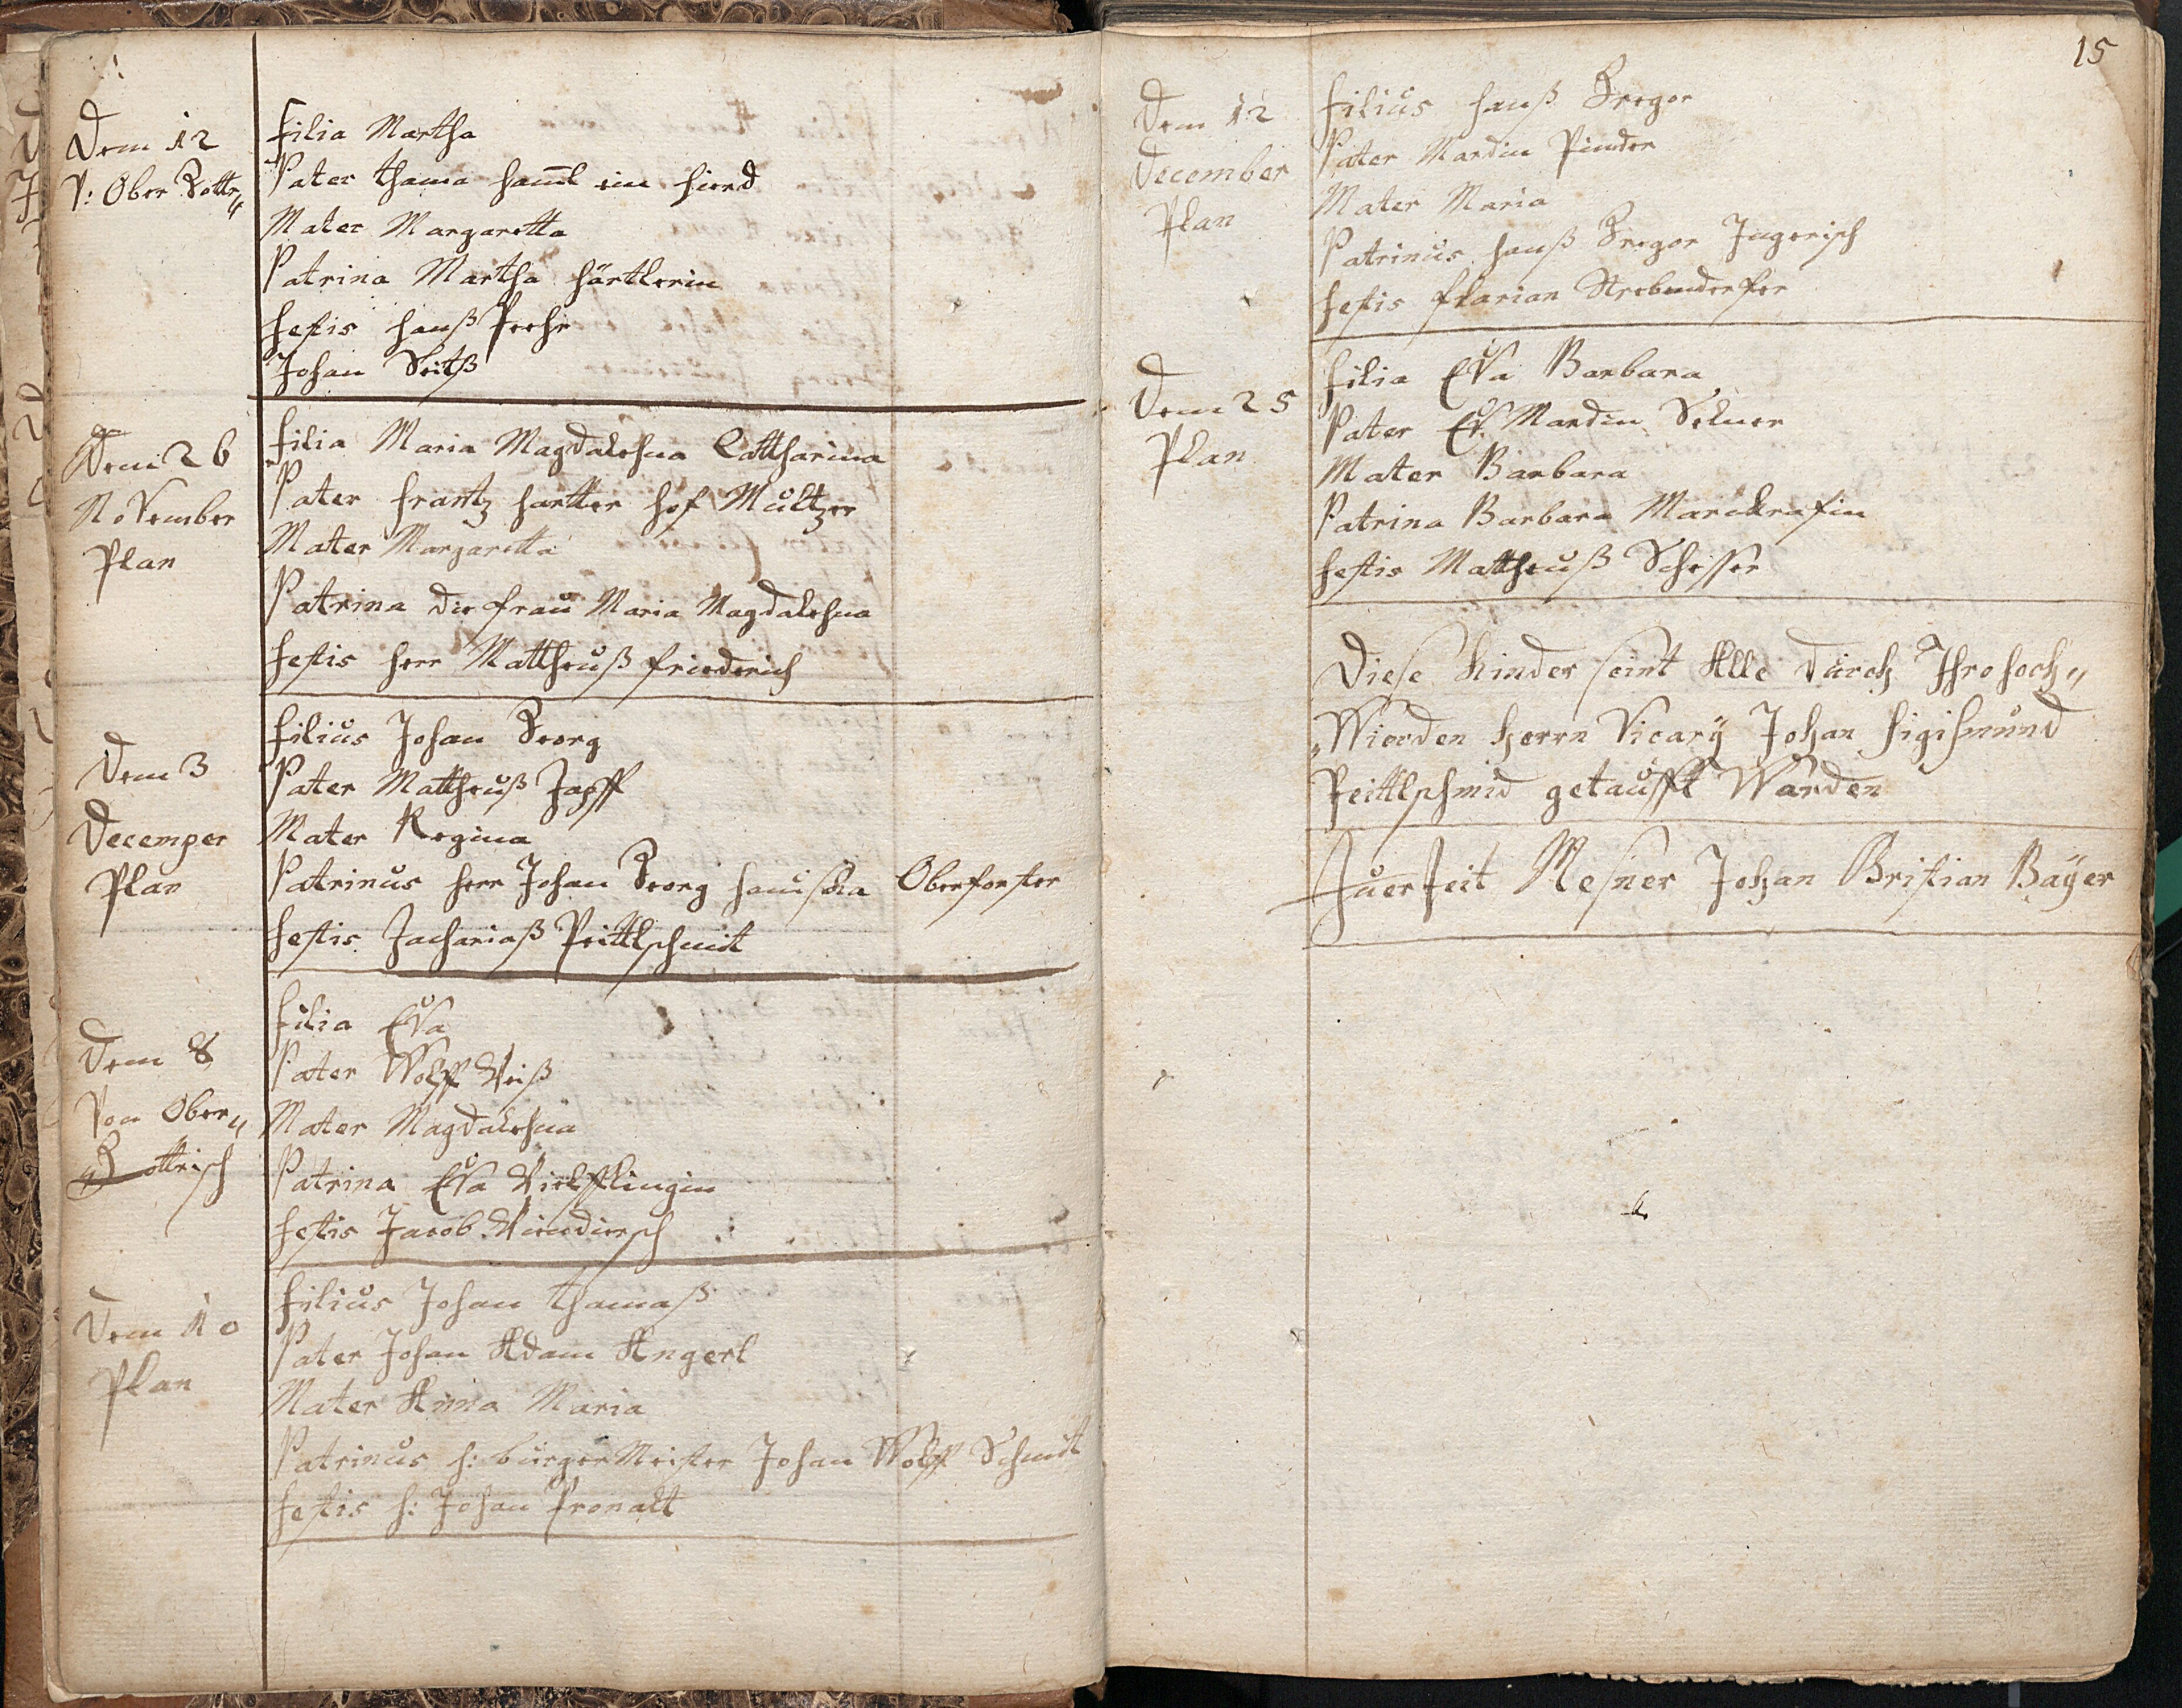 Dem 12
V: Ober Gottr„
filia Martha
Pater thama hamͤl ein hierd
Mater Margaretta
Patrina Martha härtlerin
testis hanß
Johan
Dem 26
November
Plan
filia Maria Magdalehna Cattharina
Pater frantz hartter hof Multzer
Mater Margaretta
Patrina die frau Maria Magdalehna
testis herr Mattheuß friederich
Dem 3
Decemper
Plan
filius Johan Georg
Pater Mattheuß Zapff
Mater Regina
Patrinus herr Johan Georg Oberforster
testis Zachariaß Peittlschmit
Dem 8
Von Ober„
„Gottrisch
filia Eva
Pater Wolff Weiß
Mater Magdalehna
Patrina Eva
testis Jacob
Dem 10
Plan
filius Johan thamaß
Pater Johan Adam Angerl
Mater Anna Maria
Patrinus h: bürger Meister Johan Wolff Schmit
testis h: Johan Pronalt
15
Dem 12
December
Plan
filius hanß Gregor
Pater Mardin Pinder
Mater Maria
Patrinus hanß Gregor Ingerisch
testis flarian
Dem 25
Plan
filia Eva Barbara
Pater Mardin Selner
Mater Barbara
Patrina Barbara Marckrafin
testis Mattheuß Schesser
Diese Kinder seint Alle durch Ihro hoch„
„Wierden herrn Vicary Johan Sigismund
Peittlschmid getaufft Warden
Zuer Zeit Mesner Johan Bristian Baÿer